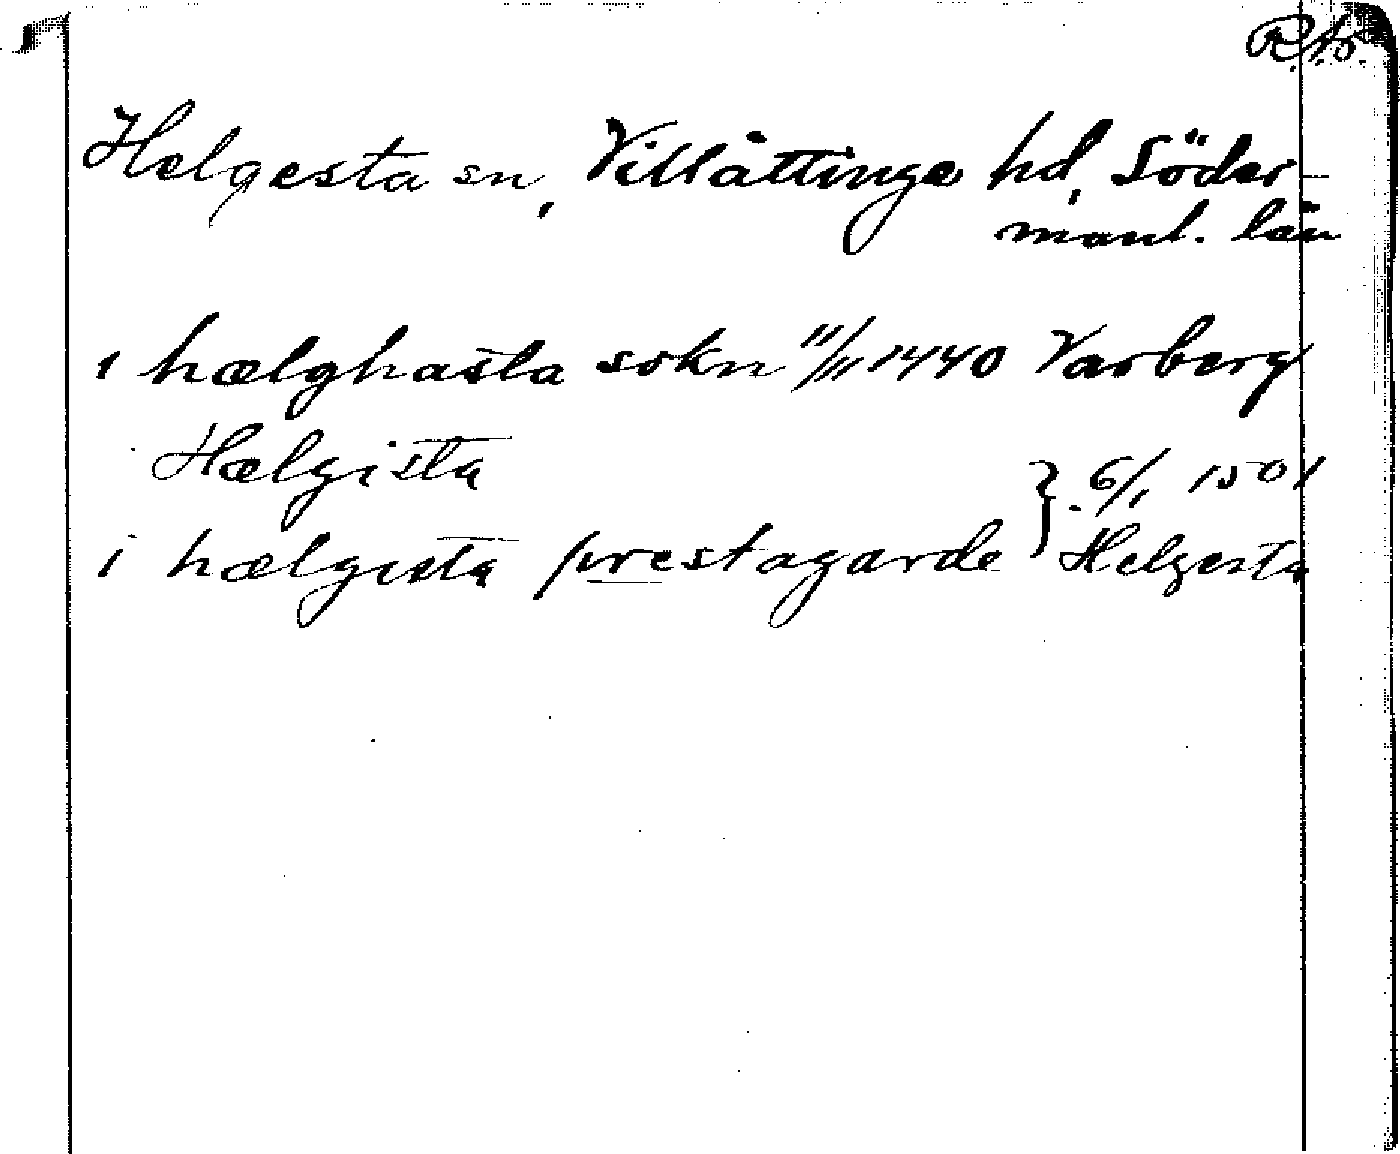 R.A.
Helgesta sn, Villåttinge hd, Söder-
manl. län
i hælghasta sokn 11/11 1440 Varberg
Hælgista
} 6/1 1501
i hælgista prestagarde Helgesta